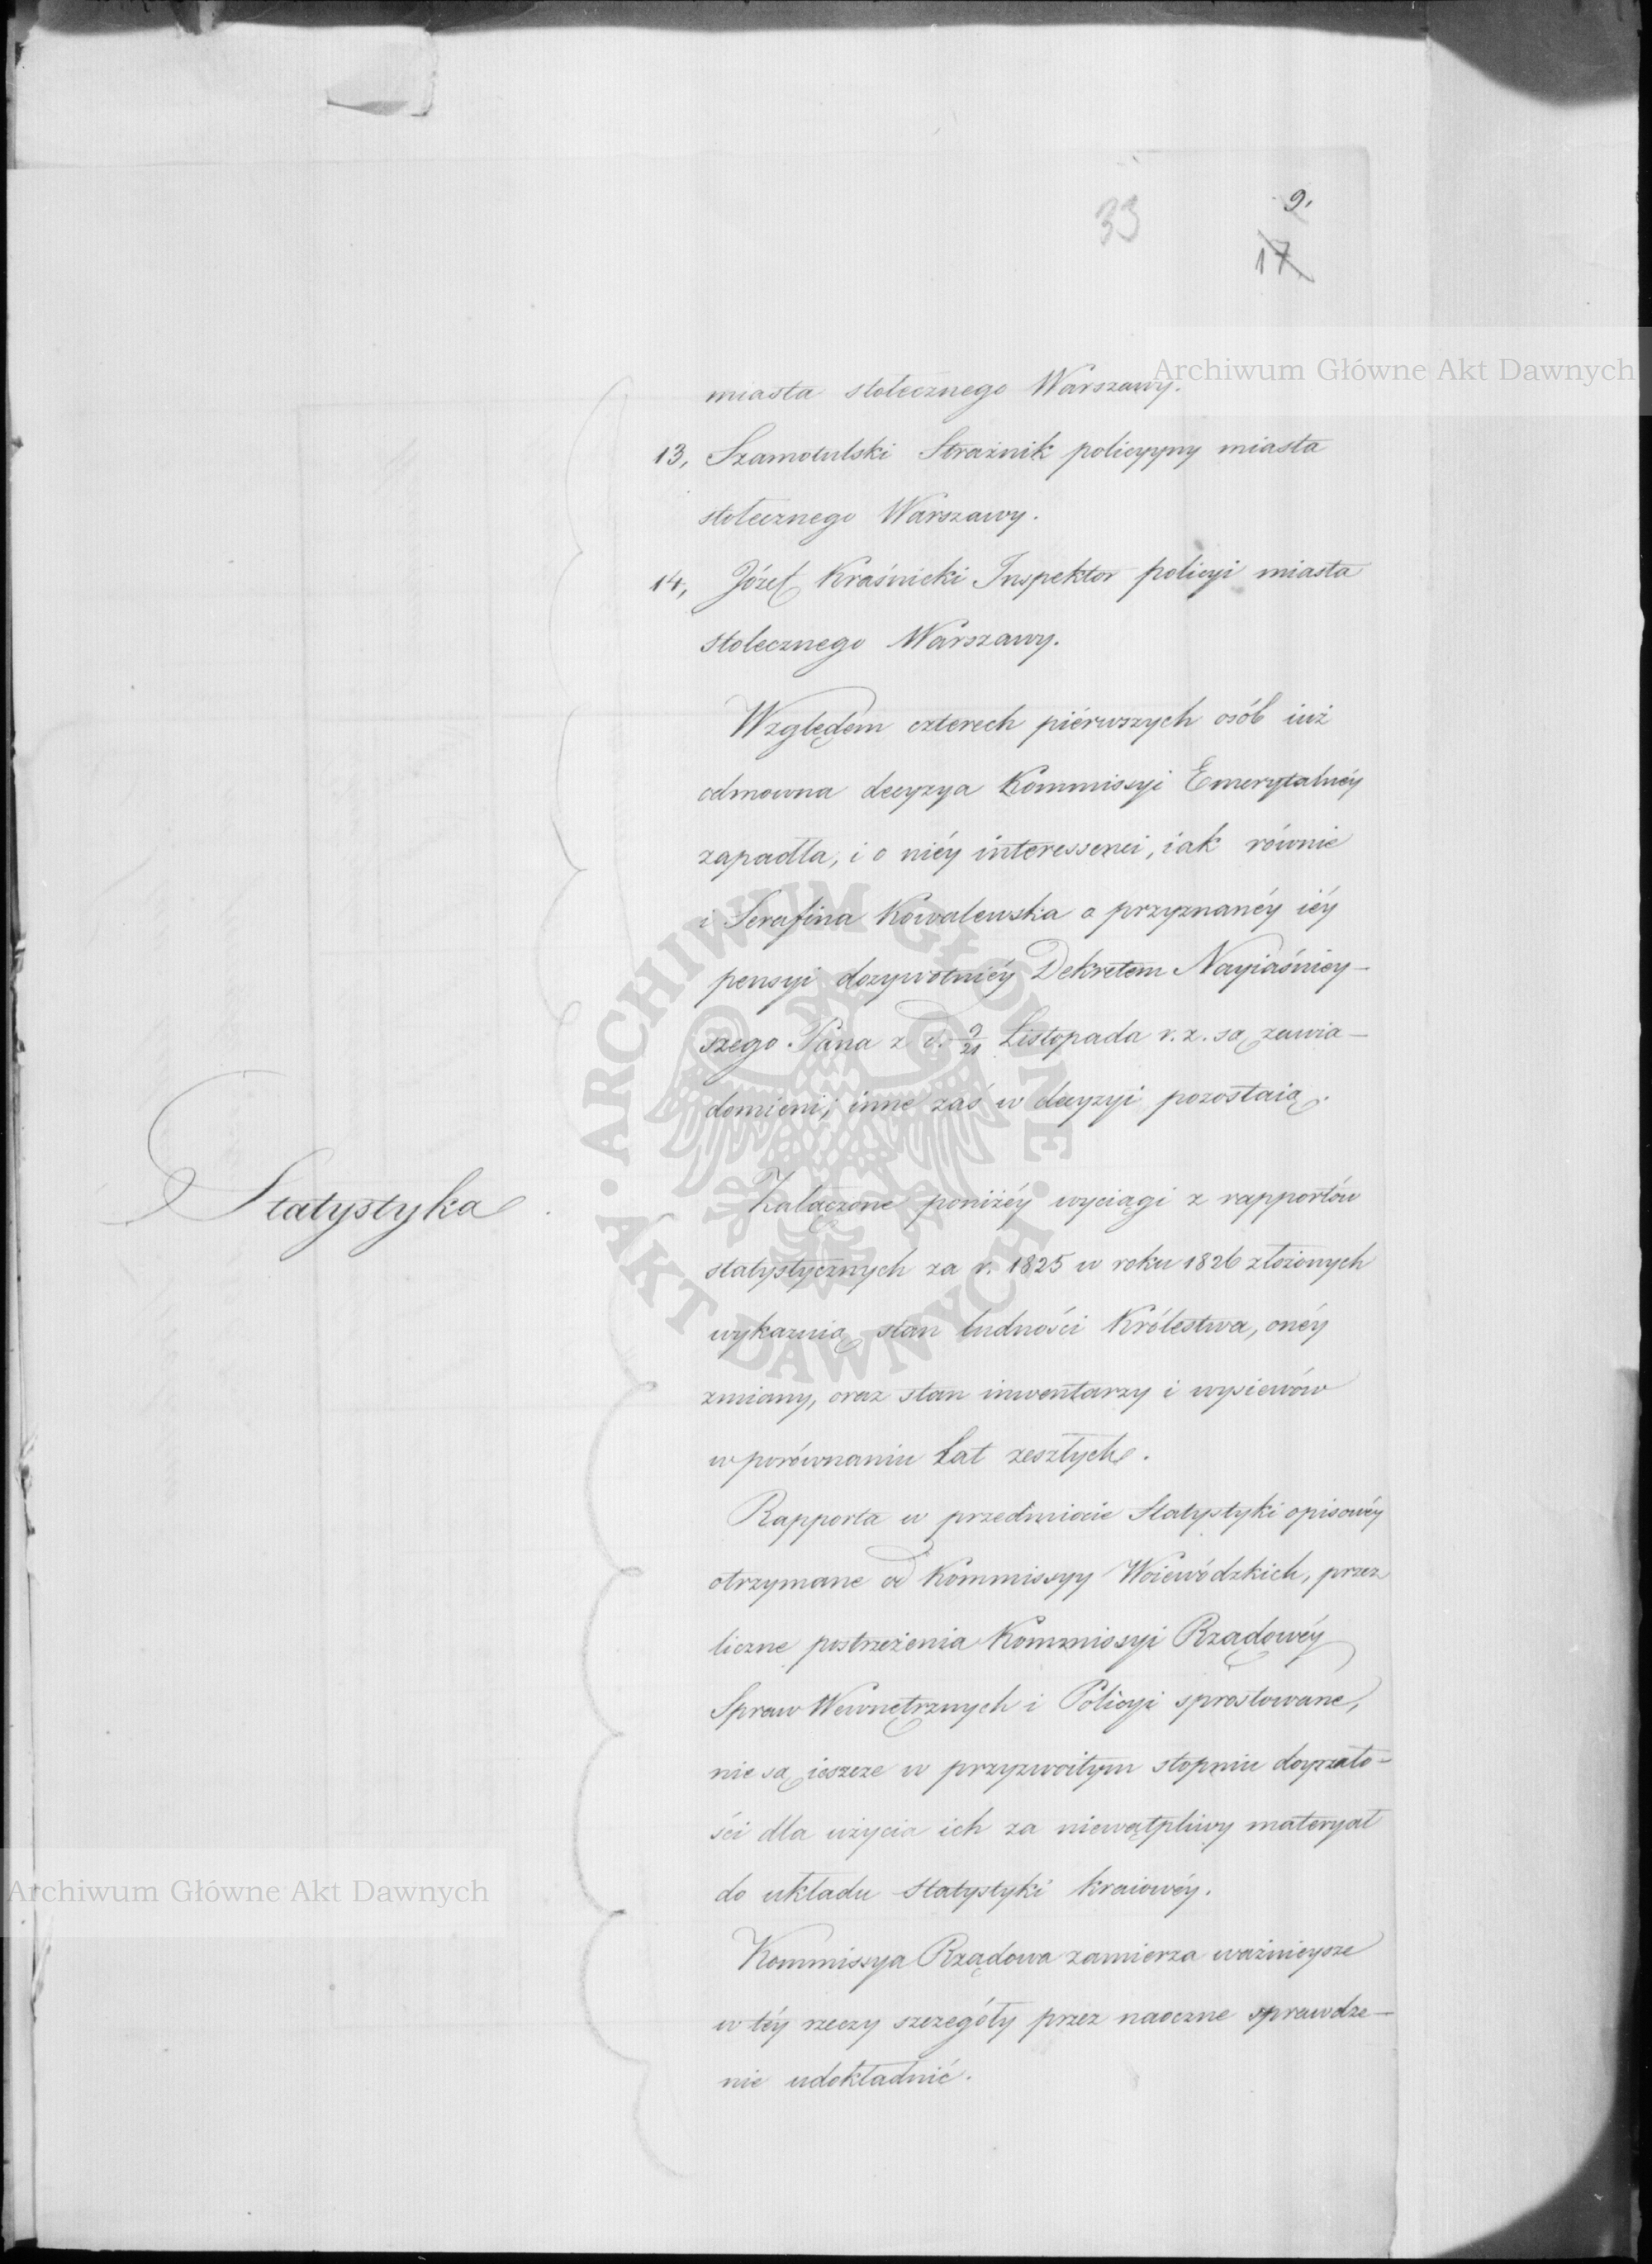 33
9.
17
Archiwum Główne Akt Dawnych
miasta stołecznego Warszawy.
13, Szamotulski Strażnik policyyny miasta
stołecznego Warszawy.
14, Józef Kraśnicki Inspektor policyi miasta
stołecznego Warszawy.
Względem czterech piérwszych osób iuż
odmowna decyzya Kommissyi Emerytalnéy
zapadła, i o niéy interessenci, iak równie
i Serafina Kowalewska o przyznanéy iéy
pensyi dożywotniéy Dekretem Nayiaśniey-
szego Pana z d. 9/21 Listopada r. z. są zawia-
domieni; inne zaś w decyzyi pozostaią.
Statystyka
Załączone poniżéy wyciągi z rapportów
statystycznych za r. 1825 w roku 1826 złożonych
wykazuią stan ludności Królestwa, onéy
zmiany, oraz stan inwentarzy i wysiewów
w porównaniu Lat zeszłych.
Rapporta w przedmiocie Statystyki opisowéy
otrzymane od Kommissyy Woiewódzkich, przez
liczne postrzeżenia Kommissyi Rządowéy
Spraw Wewnętrznych i Policyi sprostowane,
nie są ieszcze w przyzwoitym stopniu doyrzało-
ści dla użycia ich za niewątpliwy materyał
do układu Statystyki kraiowéy.
Archiwum Główne Akt Dawnych
Kommissya Rządowa zamierza ważnieysze
w téy rzeczy szczegóły przez naoczne sprawdze-
nie udokładnić.
ARCHIWUM GŁÓWNE
AKT DAWNYCH